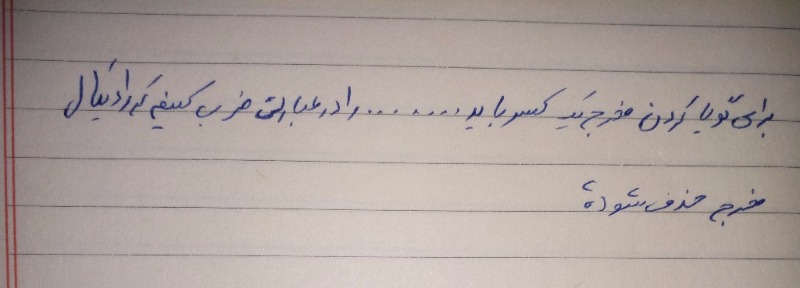 برای گویا کردن مخرج یک کسر باید ........ را در عبارتی ضرب کنیم که رادیکال
مخرج حذف شود؟